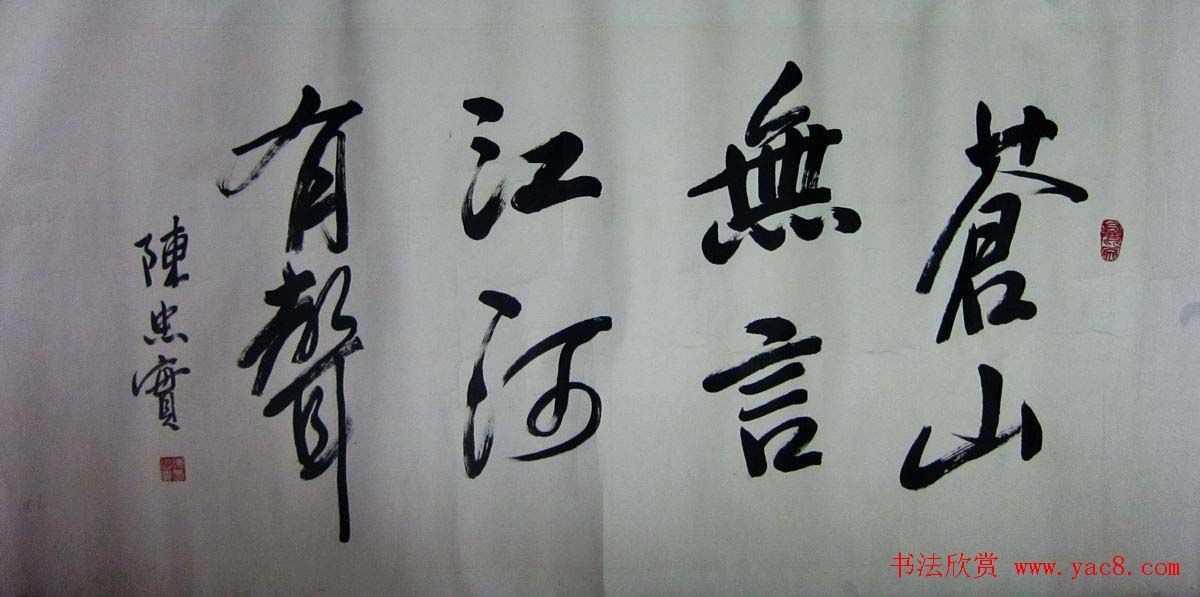 蒼山
無言
江河
有聲
陳忠實
书法欣赏 www.yac8.com